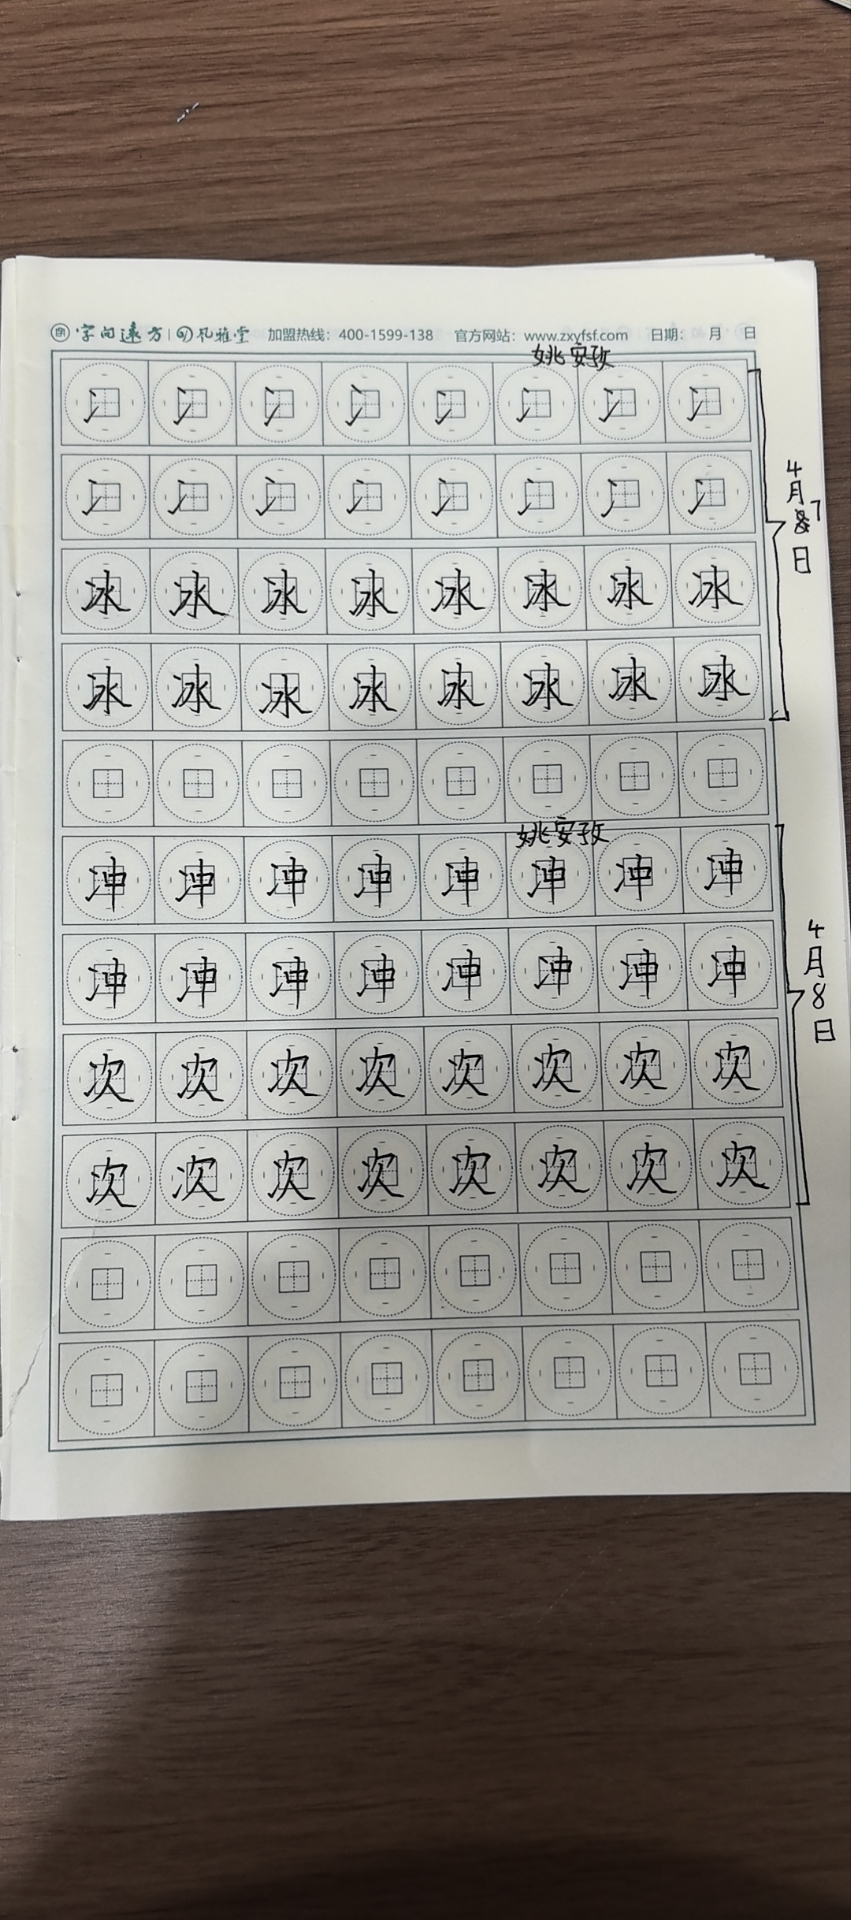 字间远方 凡雅堂 加盟热线：400-1599-138 官方网站：www.zxyfsf.com 日期： 月 日
姚安孜
冫 冫 冫 冫 冫 冫 冫 冫
冫 冫 冫 冫 冫 冫 冫 冫
冰 冰 冰 冰 冰 冰 冰 冰
冰 冰 冰 冰 冰 冰 冰 冰
4月7日
姚安孜
冲 冲 冲 冲 冲 冲 冲 冲
冲 冲 冲 冲 冲 冲 冲 冲
次 次 次 次 次 次 次 次
次 次 次 次 次 次 次 次
4月8日